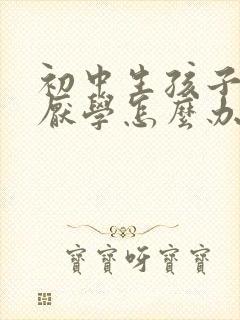 初中生孩子
厭學怎麼办
寶寶呀寶寶